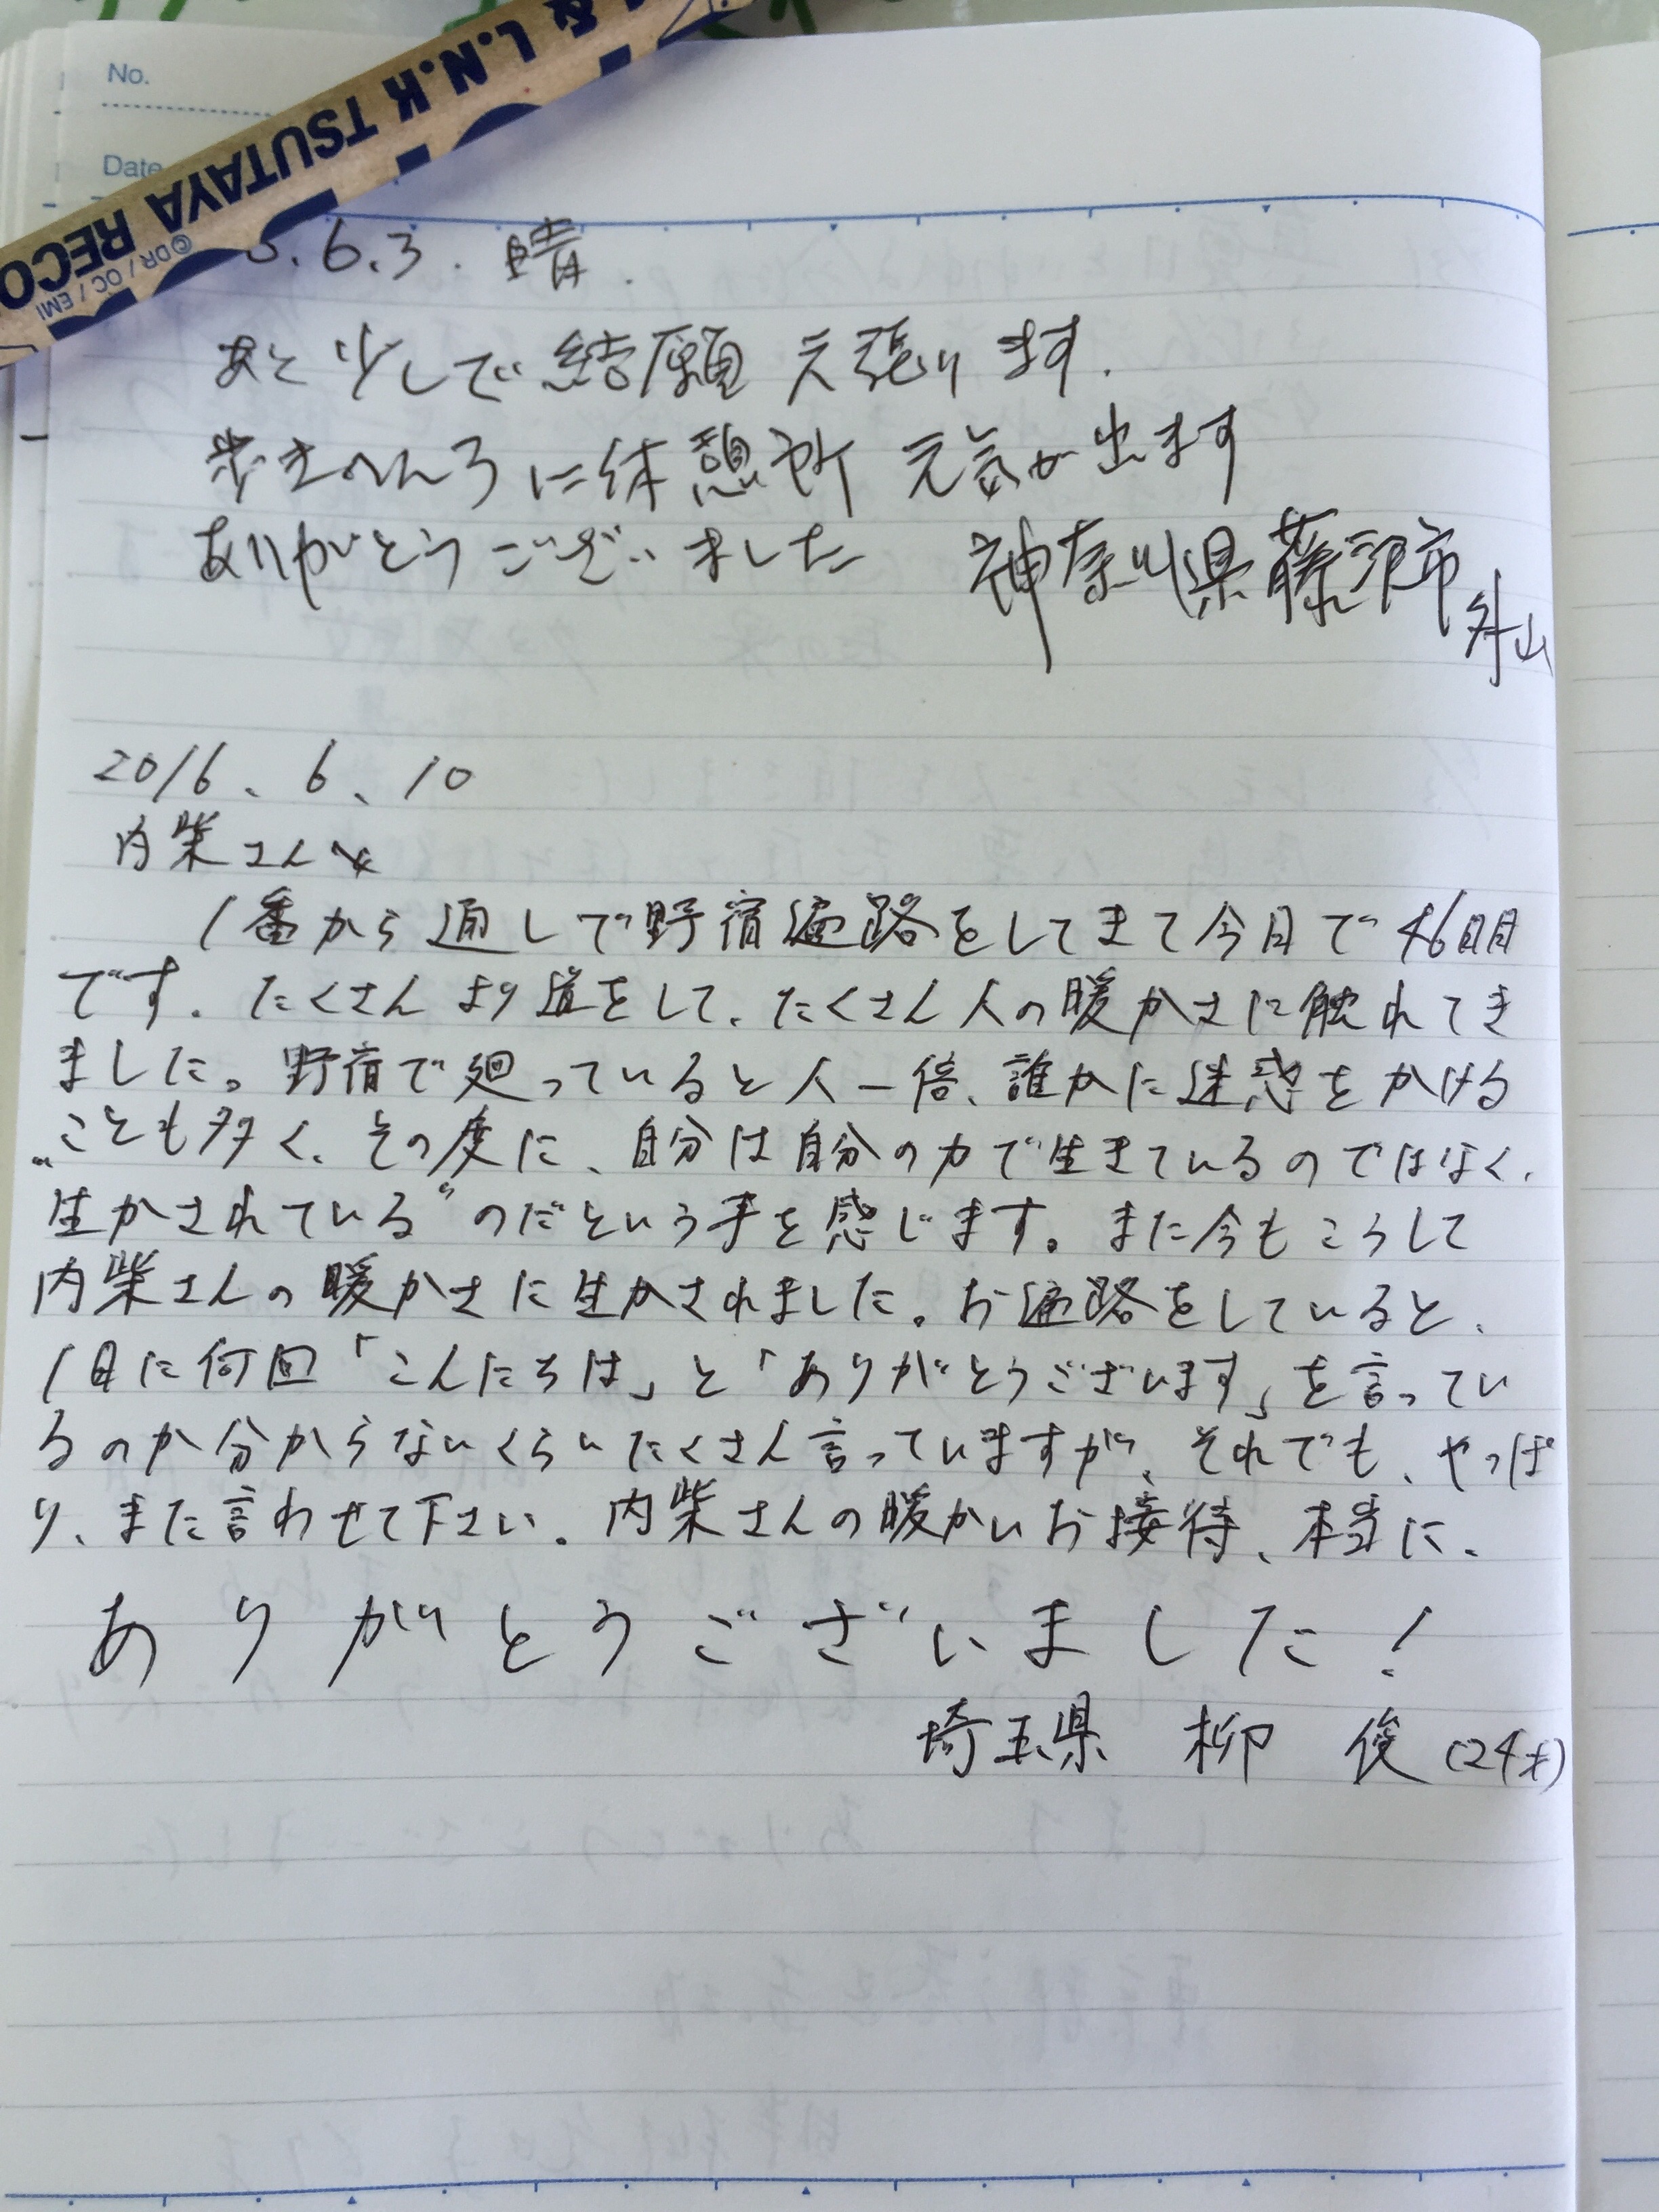 & L.N.K TSUTAYA RECO
©DR / OC / EMI
No.
Date
6.3. 晴.
あと少しで結願 元張ります.
歩きへんろに休憩所 元気が出ます
ありがとうございました 神奈川県藤沢市
外山
2016、6、10
内柴さんへ
1番から通しで野宿遍路をしてきて今日で46日目
です。たくさんより道をして、たくさん人の暖かさに触れてき
ました。野宿で廻っていると人一倍、誰かに迷惑をかける
ことも多く、その度に、自分は自分の力で生きているのではなく、
“生かされている”のだという事を感じます。また今もこうして
内柴さんの暖かさに生かされました。お遍路をしていると、
1日に何回「こんにちは」と「ありがとうございます」を言ってい
るのか分からないくらいたくさん言っていますが、それでも、やっぱ
り、また言わせて下さい。内柴さんの暖かいお接待、本当に、
ありがとうございました!
埼玉県 柳 俊 (24才)